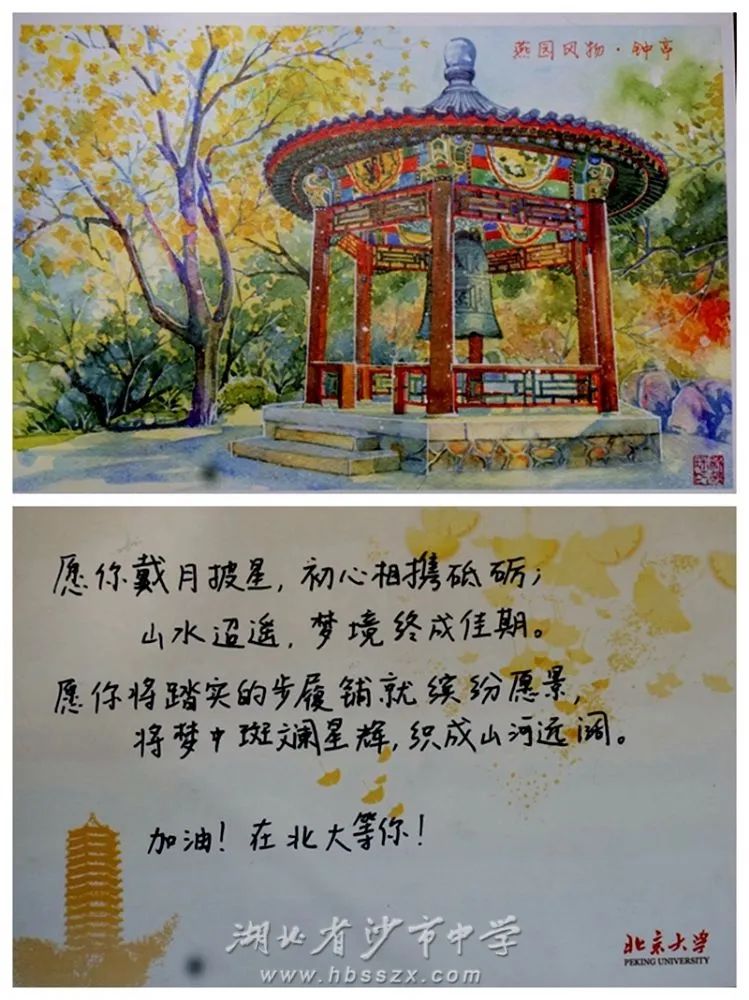 燕园风物·钟亭
愿你戴月披星，初心相携砥砺；
山水迢遥，梦境终成佳期。
愿你将踏实的步履铺就缤纷愿景，
将梦中斑斓星辉，织成山河远阔。
加油！在北大等你！
湖北省沙市中学
www.hbsszx.com
北京大学
PEKING UNIVERSITY